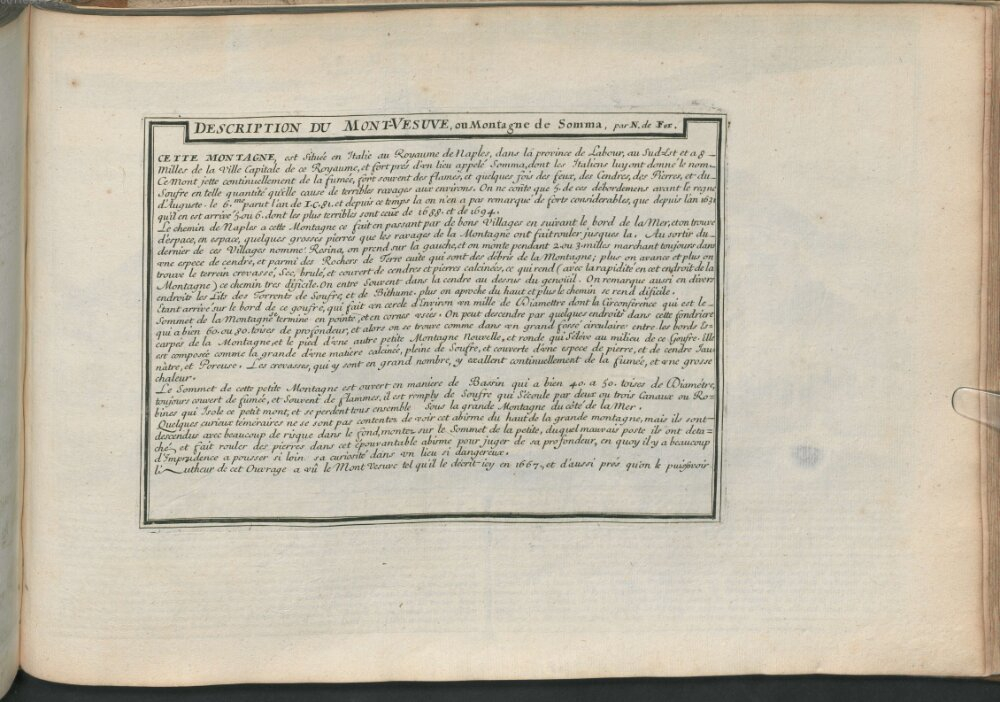 DESCRIPTION DU MONT-VESUVE, ou Montagne de Somma, par N. de Fer.
CETTE MONTAGNE, est située en Italie au Royaume de Naples, dans la province de Labour, au Sud-Est et a 8
Milles de la Ville Capitale de ce Royaume, et fort prés d'vn lieu appelé Somma, dont les Italiens luy ont donné le nom.
Ce Mont jette continuellement de la fumée, fort souvent des flames, et quelques fois des feux, des Cendres, des Pierres, et du
Soufre en telle quantité qu'elle cause de terribles ravages aux environs. On ne coûte que 5. de ces débordemens avant le regne
d'Auguste. le 6.me parut l'an de I.C. 81. et depuis ce temps la on n'en a pas remarqué de forts considerables, que depuis l'an 1631
qu'il en est arrivé 5 ou 6. dont les plus terribles sont ceux de 1688. et de 1694.
Le chemin de Naples a cette Montagne ce fait en passant par de bons Villages en suivant le bord de la Mer, et on trouve
d'espace, en espace, quelques grosses pierres que les ravages de la Montagne ont fait rouler jusques la. Au sortir du
dernier de ces Villages nommé Resina, on prend sur la gauche, et on monte pendant 2 ou 3 milles marchant toujours dans
vne espece de cendre, et parmi des Rochers de Terre cuite qui sont des débris de la Montagne; plus on avance et plus on
trouve le terrein crevassé, Sec, brulé, et couvert de cendres et pierres calcinées, ce qui rend (avec la rapidité en cet endroit de la
Montagne) ce chemin tres dificile. On entre Souvent dans la cendre au dessus du genoüil. On remarque aussi en divers
endroits les Lits des Torrents de Soufre, et de Bithume. plus on aproche du haut et plus le chemin se rend dificile.
Etant arrivé sur le bord de ce goufre, qui fait vn cercle d'Environ vn mille de Diamettre dont la Circonférence qui est le
Sommet de la Montagne termine en pointe, et en cornes vsées. On peut descendre par quelques endroits dans cette fondriere
qui a bien 60. ou 80. toises de profondeur, et alors on se trouve comme dans vn grand fossé circulaire entre les bords Es-
carpés de la Montagne, et le pied d'vne autre petite Montagne Nouvelle, et ronde qui S'éleve au milieu de ce Goufre. Elle
est composée comme la grande d'vne matiere calcinée, pleine de Soufre, et couverte d'vne espece de pierre, et de cendre Jau
nâtre, et Poreuse. Les crevasses, qui y sont en grand nombre, y exallent continuellement de la fumée, et vne grosse
chaleur.
Le Sommet de cette petite Montagne est ouvert en maniere de Bassin qui a bien 40. a 50. toises de Diamétre,
toujours couvert de fumée, et Souvent de flammes, il est remply de Soufre qui S'écoule par deux ou trois Canaux ou Ro-
bines qui Isole ce petit mont, et se perdent tous ensemble Sous la grande Montagne du côté de la Mer.
Quelques curieux temeraires ne se sont pas contentez de voir cet abirme du haut de la grande montagne, mais ils sont
descendus avec beaucoup de risque dans le fond, montez sur le Sommet de la petite, duquel mauvais poste ils ont deta-
ché, et fait rouler des pierres dans cet épouvantable abirme pour juger de sa profondeur, en quoy il y a beaucoup
d'Imprudence a pousser si loin sa curiosité dans vn lieu si dangereux.
L'Autheur de cet Ouvrage a vû le Mont Vesuve tel qu'il le décrit icy en 1667, et d'aussi prés qu'on le puisse voir